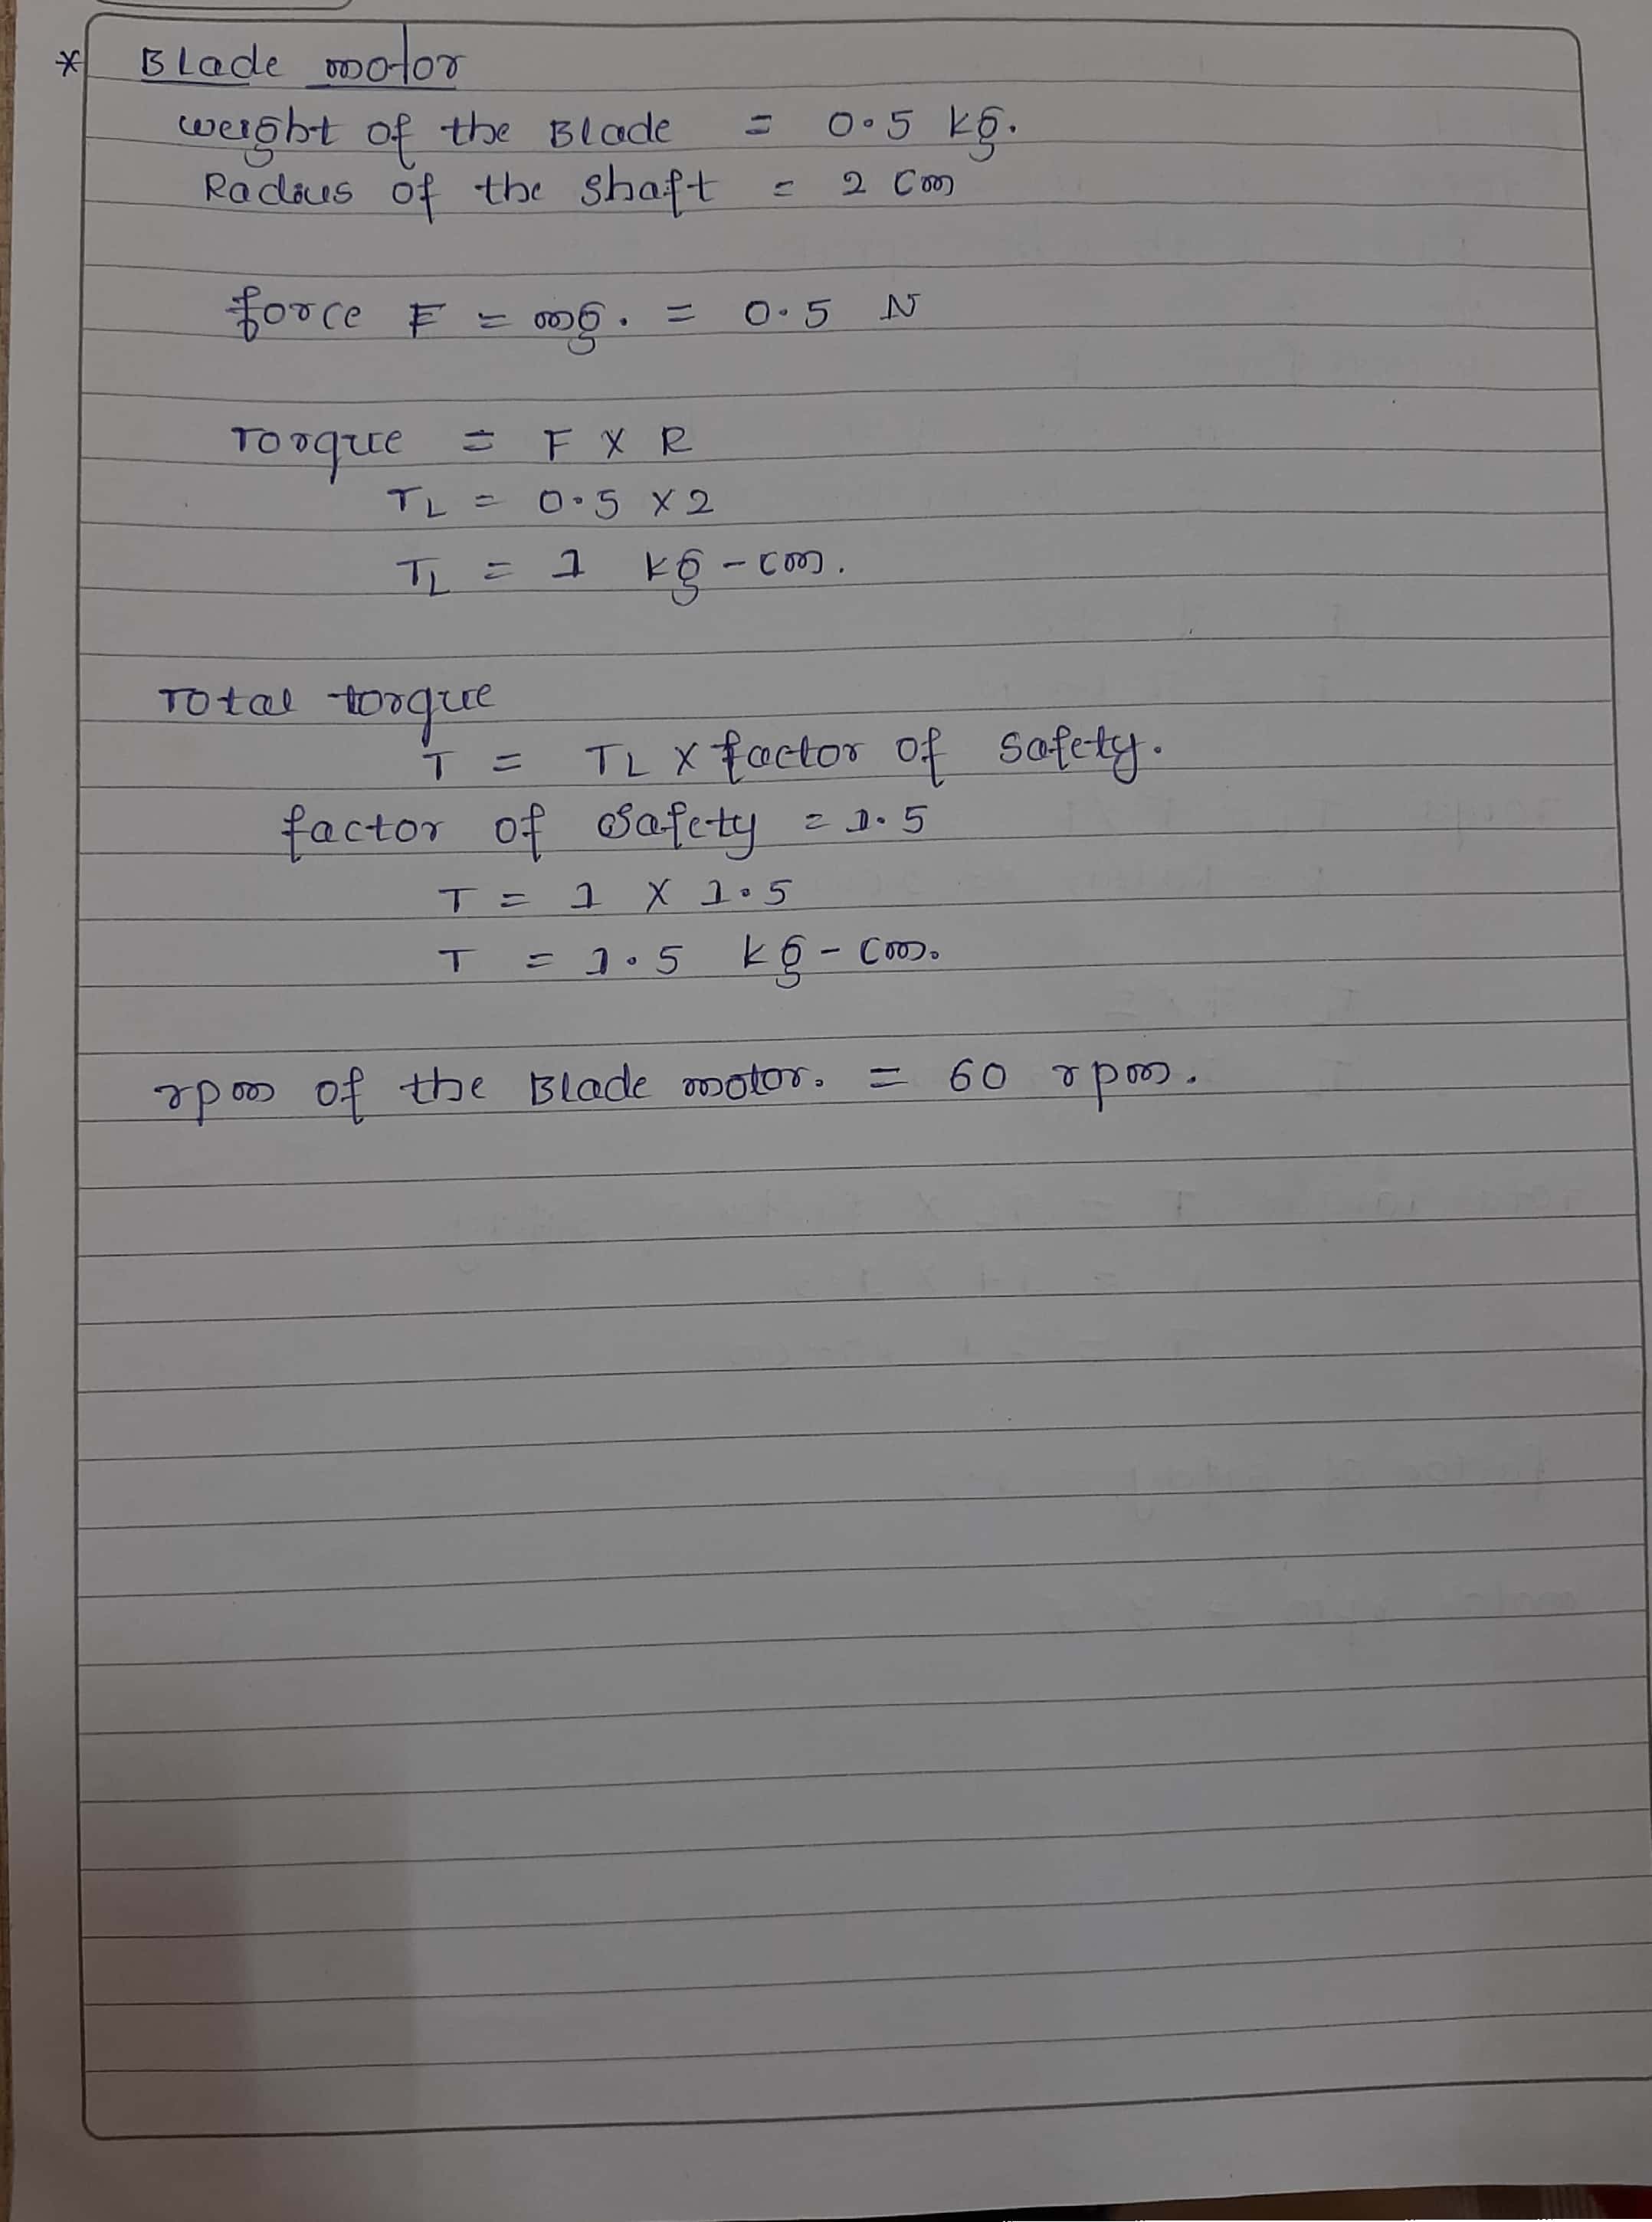 * Blade motor
weight of the Blade = 0.5 kg.
Radius of the shaft = 2 cm
force F = mg. = 0.5 N
Torque = F X R
TL = 0.5 X 2
TL = 1 kg-cm.
Total torque
T = TL X factor of safety.
factor of safety = 1.5
T = 1 X 1.5
T = 1.5 kg-cm.
rpm of the Blade motor. = 60 rpm.